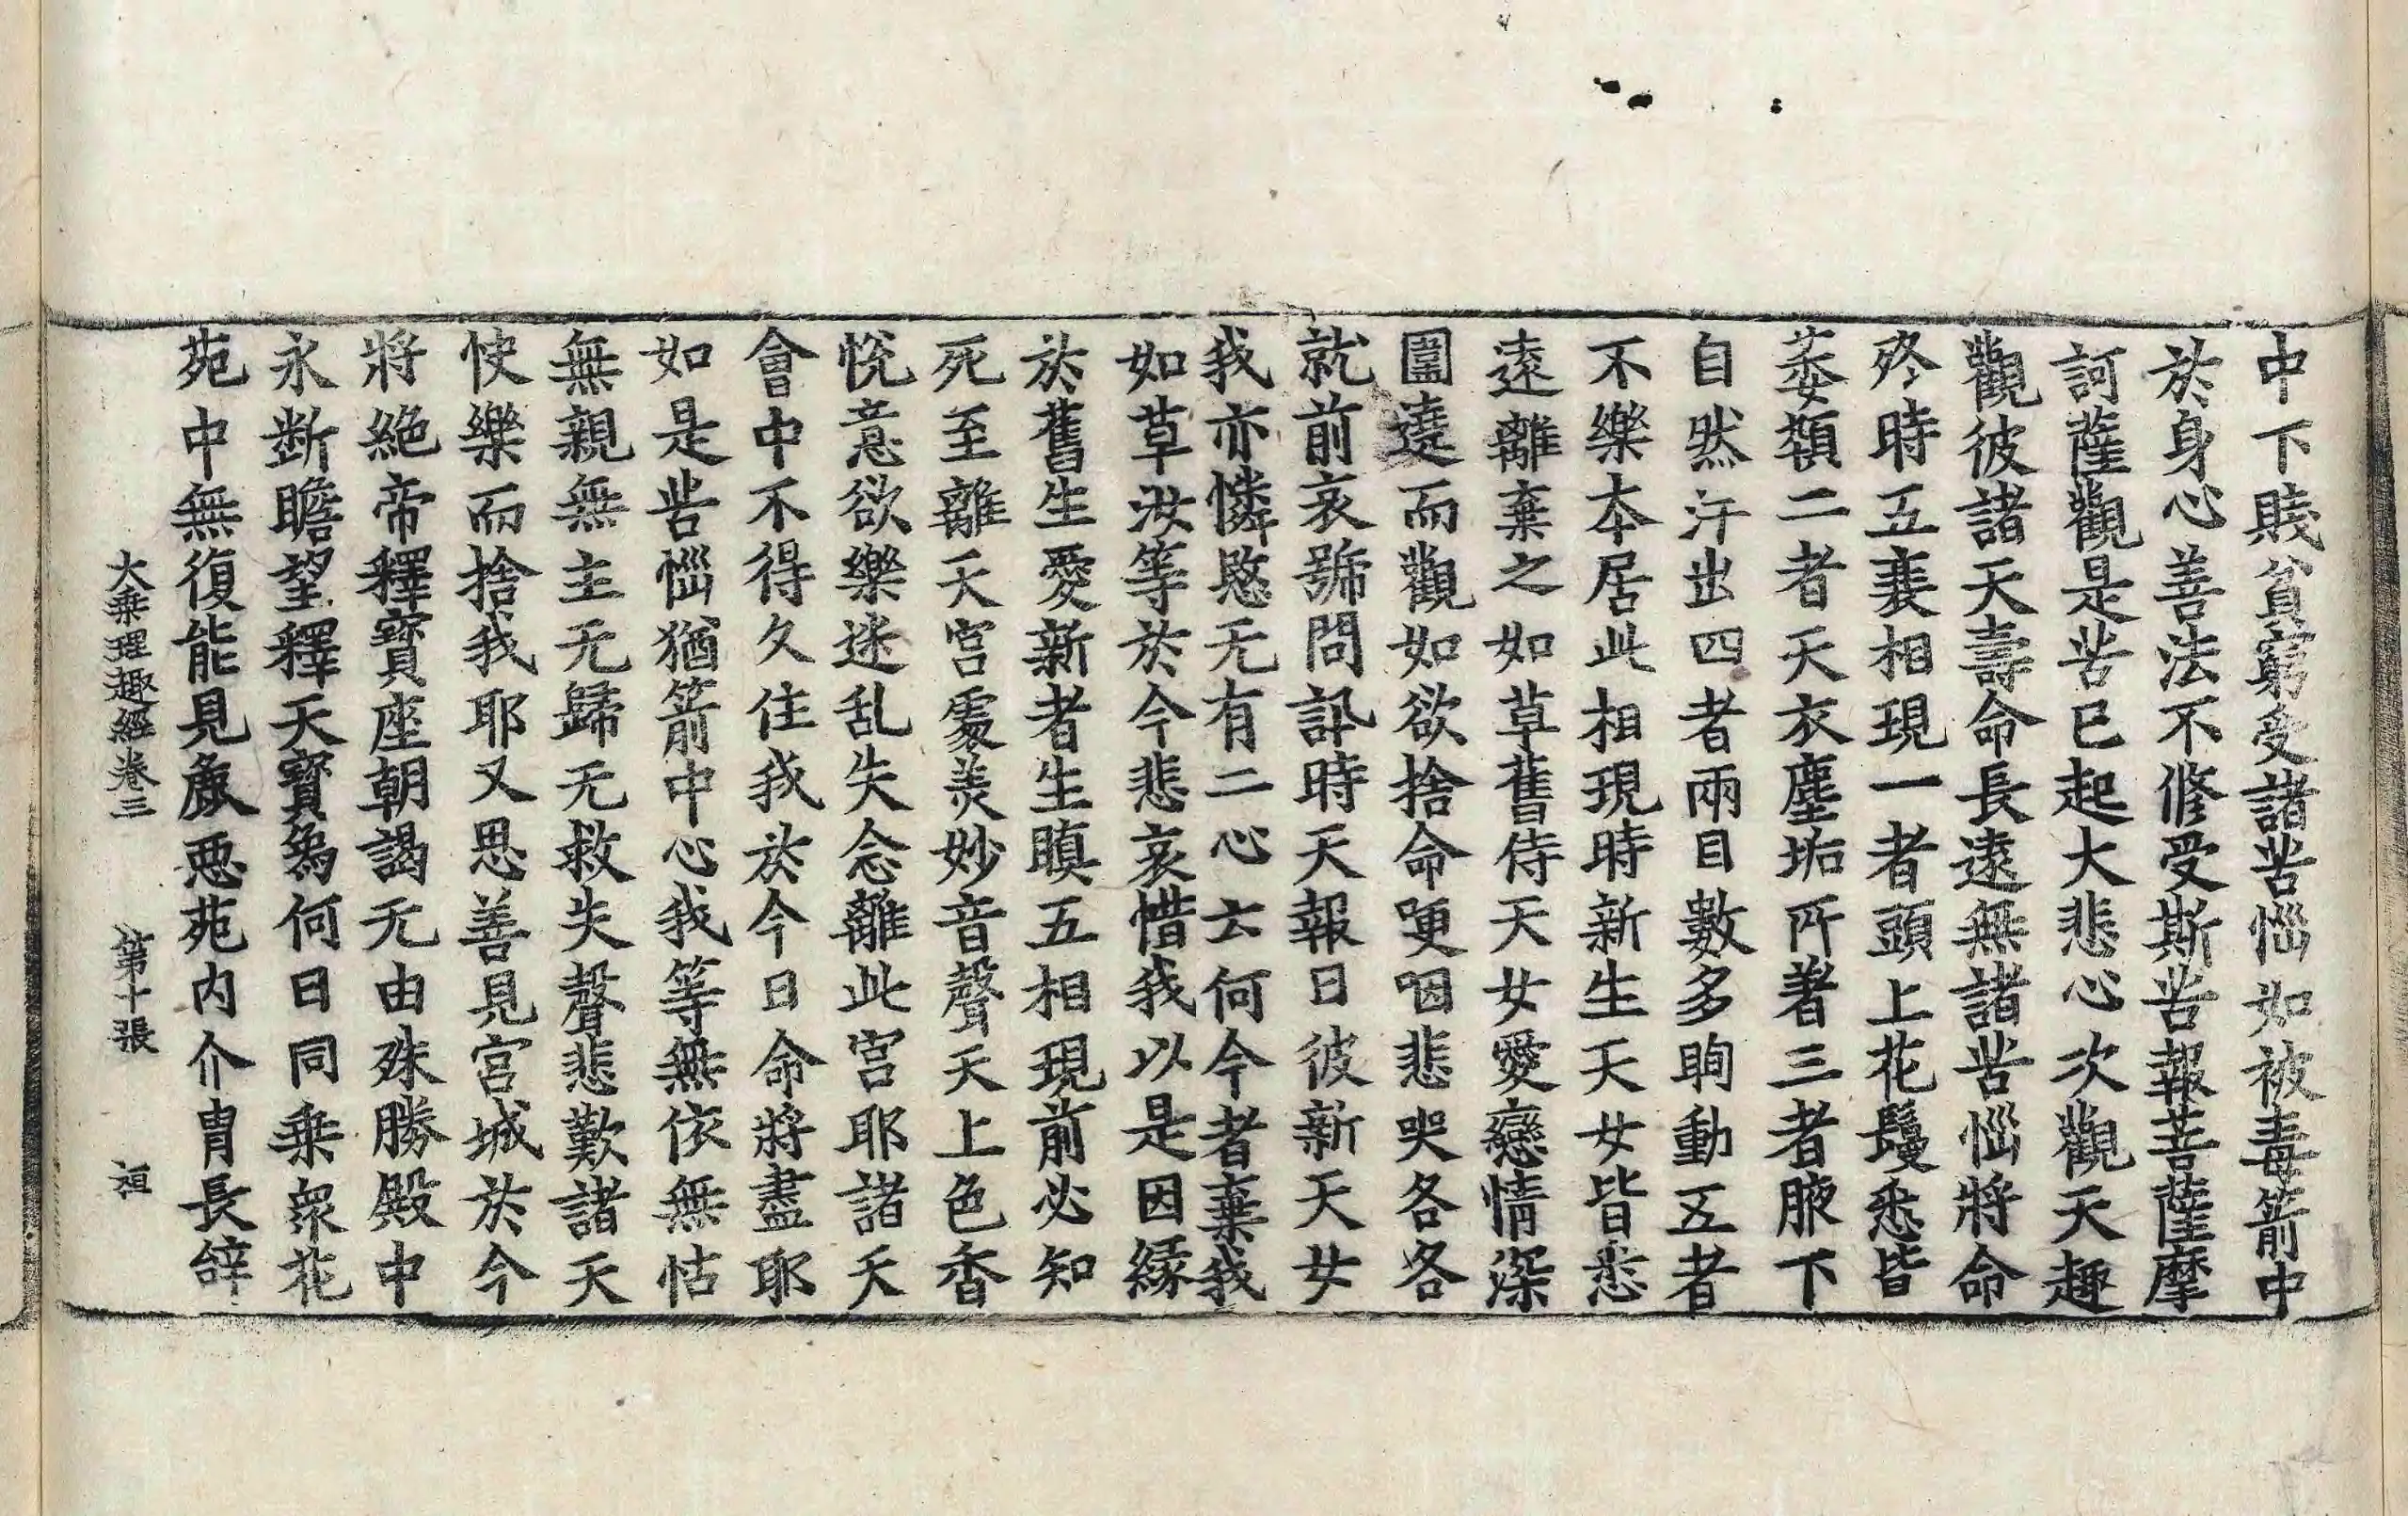 中下賎貧窮受諸苦惱如被毒箭中
於身心善法不修受斯苦報菩薩摩
訶薩觀是苦已起大悲心次觀天趣
觀彼諸天壽命長遠無諸苦惱將命
終時五衰相現一者頭上花鬘悉皆
萎顇二者天衣塵垢所著三者腋下
自然汗出四者兩目數多眴動五者
不樂本居此相現時新生天女皆悉
遠離棄之如草舊侍天女愛戀情深
圍遶而觀如欲捨命哽咽悲哭各各
就前哀號問訊時天報曰彼新天女
我亦憐愍无有二心云何今者棄我
如草汝等於今悲哀惜我以是因緣
於舊生愛新者生瞋五相現前必知
死至離天宮處羙妙音聲天上色香
悅意欲樂迷乱失念離此宮耶諸天
會中不得久住我於今日命將盡耶
如是苦惱猶箭中心我等無依無怙
無親無主无歸无救失聲悲歎諸天
快樂而捨我耶又思善見宮城於今
將絕帝釋寶座朝謁无由殊勝殿中
永斷瞻望釋天寶爲何日同乗衆花
苑中無復能見麁惡苑内介胄長辝
大乗理趣經卷三　第十張　桓